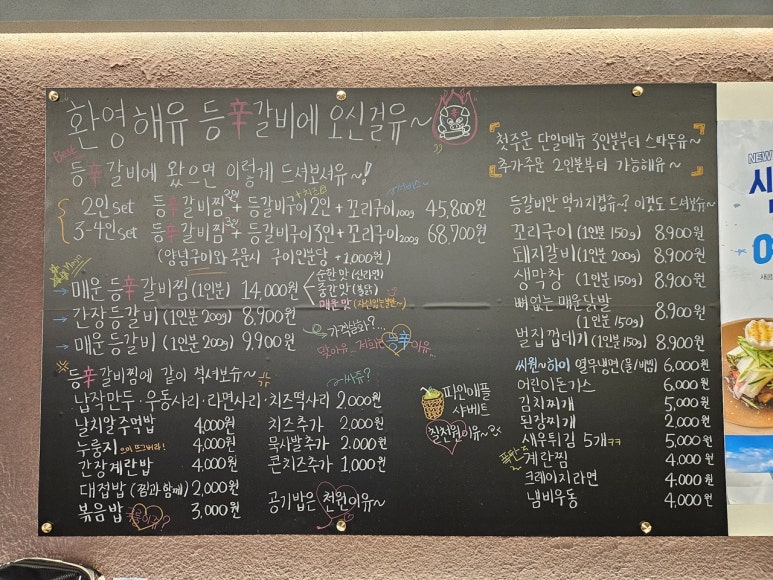 환영해유 등辛갈비에 오신걸유~
Best
등辛갈비에 왔으면 이렇게 드셔보셔유~!
2인set 등辛갈비찜 2인 + 등갈비구이 2인 + 꼬리구이 100g 45,800원
3-4인set 등辛갈비찜 3인 + 등갈비구이 3인 + 꼬리구이 200g 68,700원
(양념구이와 주문시 구이인분당 +1,000원)
매운 등辛갈비찜 (1인분) 14,000원
순한 맛 (신라면)
중간 맛 (불닭)
매운 맛 (자신있는분만~)
간장 등갈비 (1인분 200g) 8,900원
매운 등갈비 (1인분 200g) 9,900원
가격실화?...
맞아유.. 저희는 등辛이유..
등辛갈비찜에 같이 적셔보슈~
납작만두 · 우동사리 · 라면사리 · 치즈떡사리 2,000원
날치알주먹밥 4,000원
누룽지 으이 뜨거버라! 4,000원
간장계란밥 4,000원
대접밥 (찜과 함께) 2,000원
볶음밥 3,000원
치즈추가 2,000원
묵사발추가 2,000원
콘치즈추가 1,000원
공기밥은 천원이유~
파인애플
샤베트
칠천원이유~
첫주문 단일메뉴 3인분부터 스따뚜유~
추가주문 2인분부터 가능해유~
등갈비만 먹기지겹쥬~? 이것도 드셔보슈~
꼬리구이 (1인분 150g) 8,900원
돼지갈비 (1인분 200g) 8,900원
생막창 (1인분 150g) 8,900원
뼈없는 매운닭발
(1인분 150g) 8,900원
벌집껍데기 (1인분 150g) 8,900원
씨원~하이 열무냉면 (물/비빔) 6,000원
어린이돈가스 6,000원
김치찌개 5,000원
된장찌개 2,000원
새우튀김 5개 ㅋㅋ 5,000원
계란찜 4,000원
크레이지라면 4,000원
냄비우동 4,000원
NEW